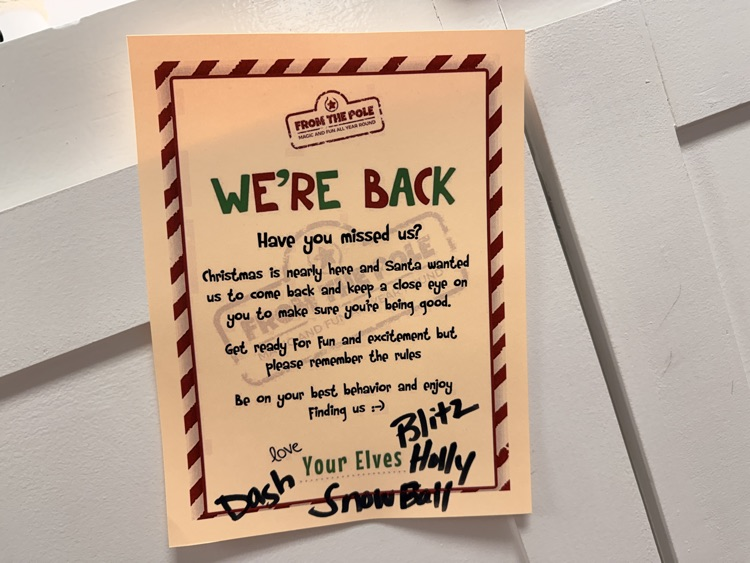 FROM THE POLE
MAGIC AND FUN ALL YEAR ROUND
WE'RE BACK
Have you missed us?
Christmas is nearly here and Santa wanted
us to come back and keep a close eye on
you to make sure you're being good.
Get ready for fun and excitement but
please remember the rules
Be on your best behavior and enjoy
finding us :-)
love
Your Elves
Blitz
Holly
Dash
SnowBall
FROM THE POLE